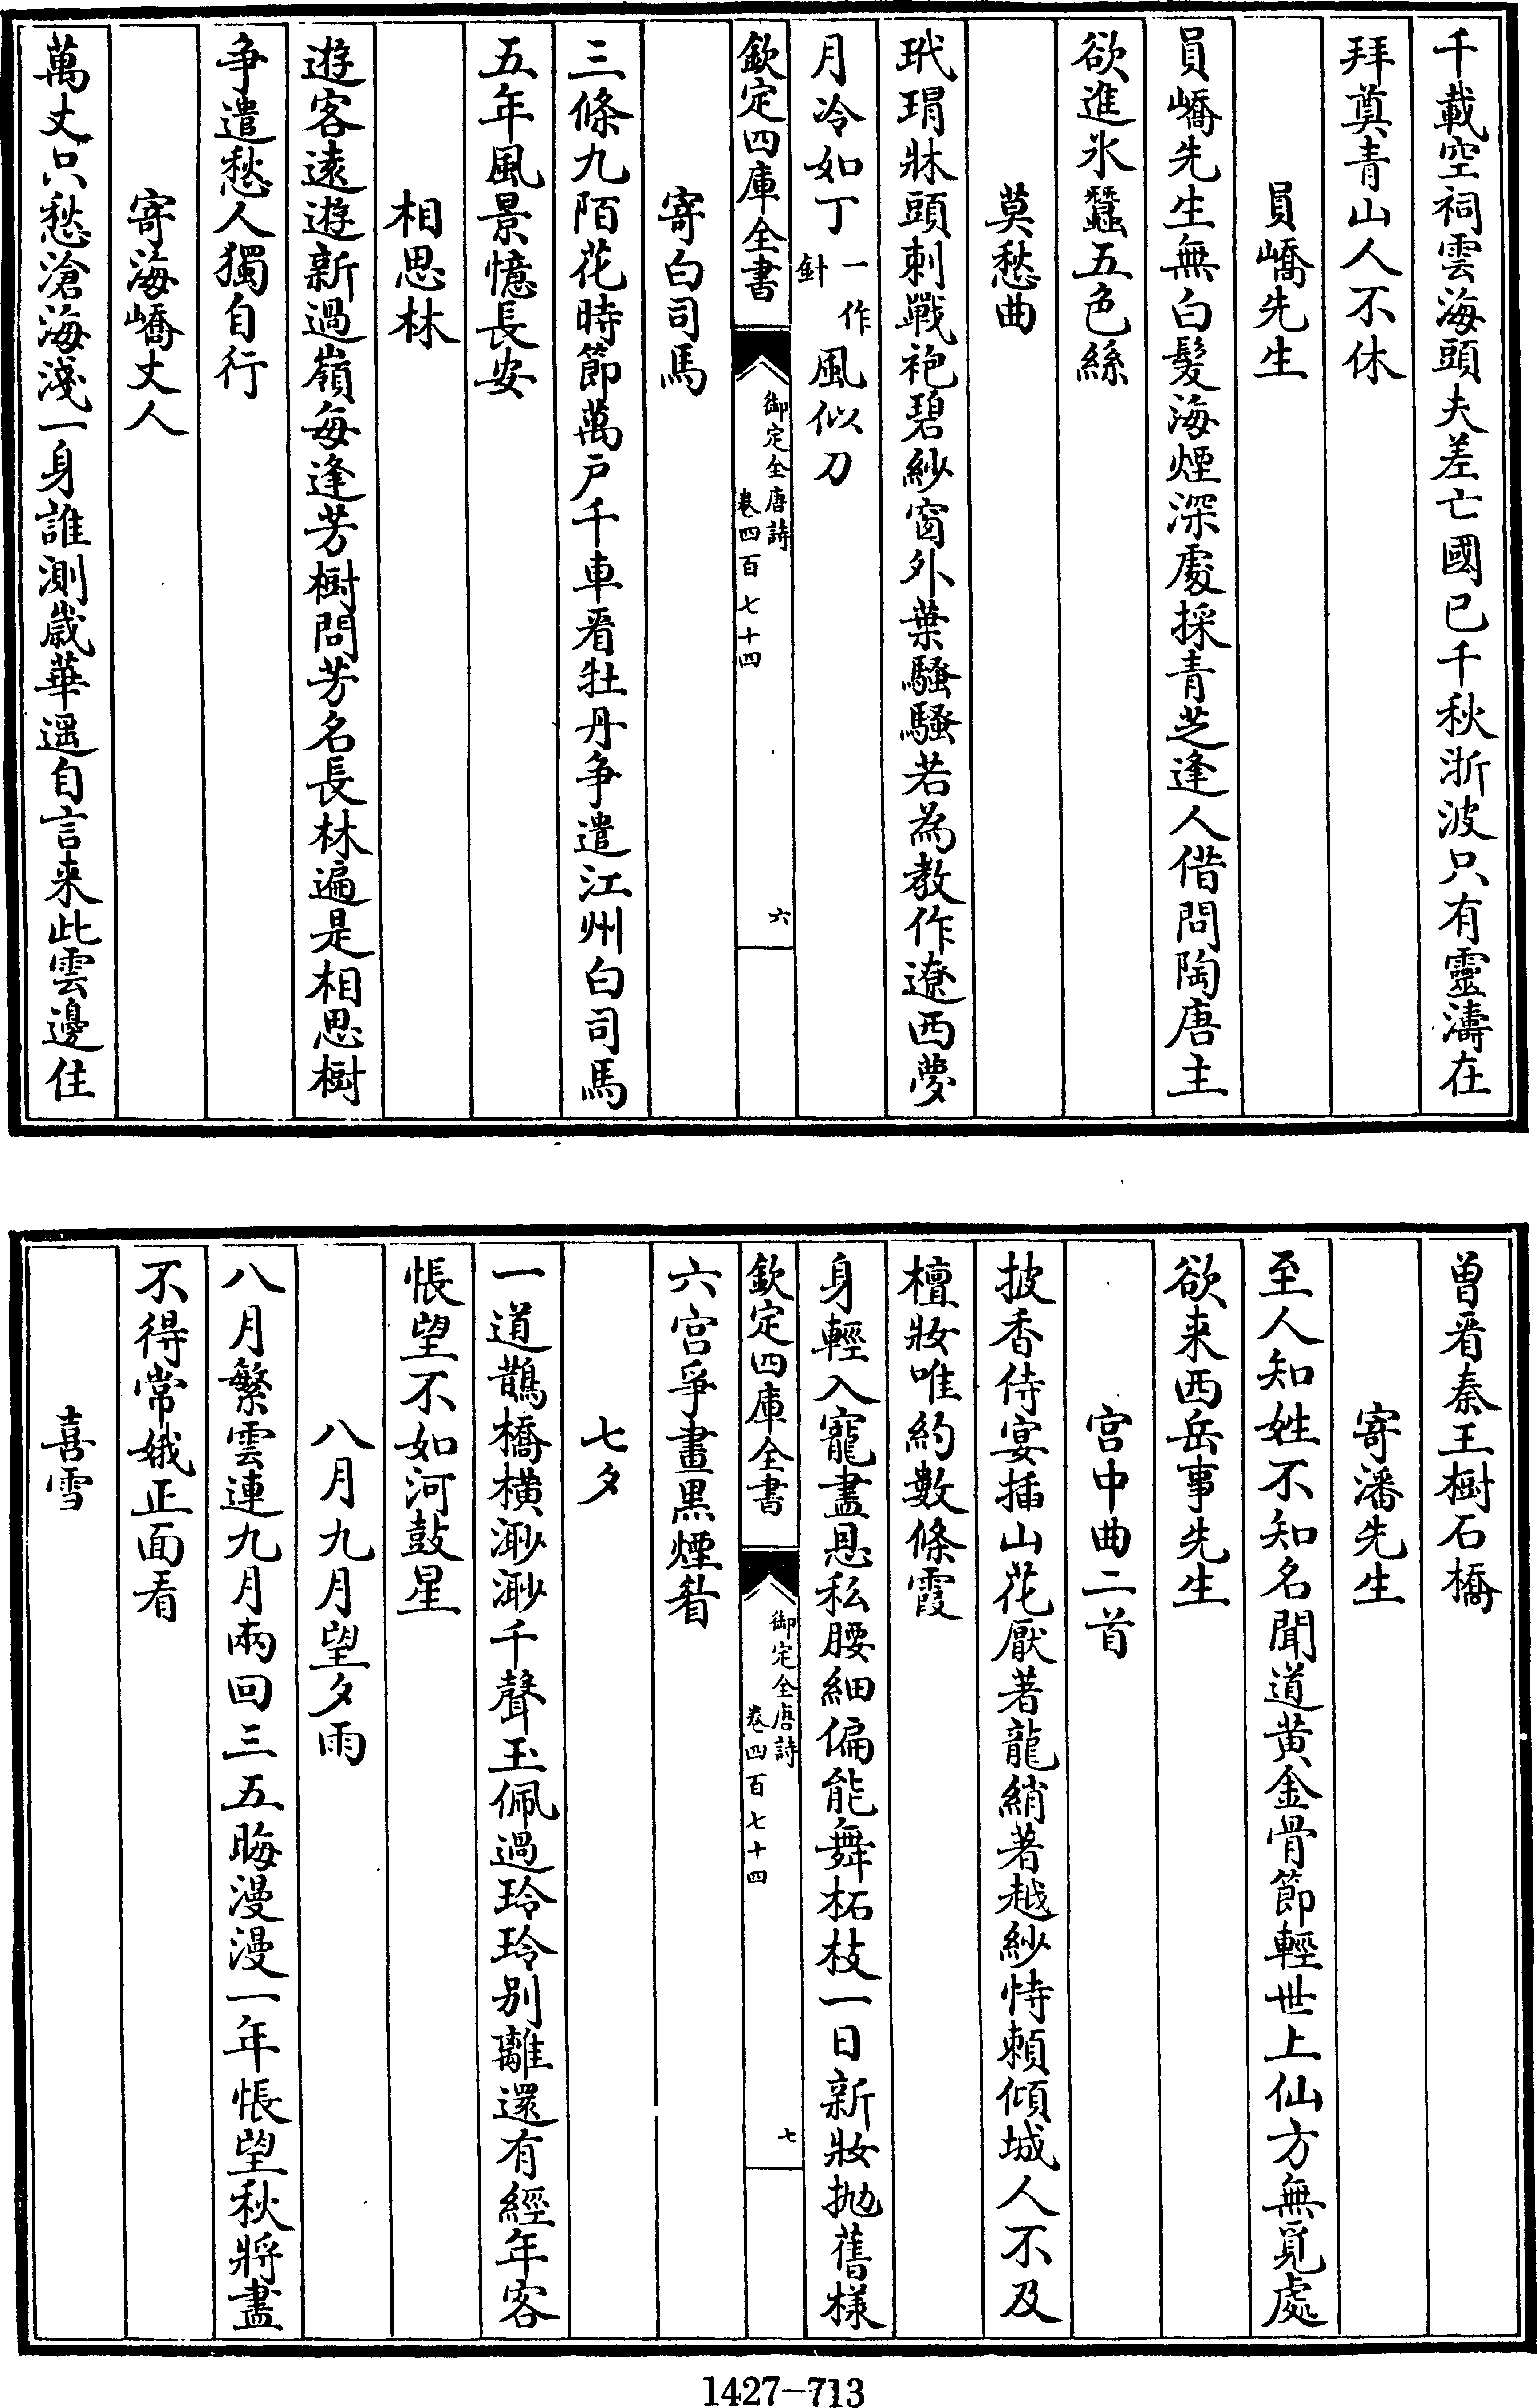 千載空祠雲海頭夫差亡國已千秋浙波只有靈濤在
拜奠青山人不休
員嶠先生
員嶠先生無白髮海煙深處採青芝逢人借問陶唐主
欲進氷蠶五色絲
莫愁曲
玳瑁牀頭刺戰袍碧紗窗外葉騷騷若為教作遼西夢
月冷如丁一作針風似刀
欽定四庫全書
御定全唐詩
卷四百七十四
六
寄白司馬
三條九陌花時節萬户千車看牡丹争遣江州白司馬
五年風景憶長安
相思林
遊客遠遊新過嶺每逢芳樹問芳名長林遍是相思樹
争遣愁人獨自行
寄海嶠丈人
萬丈只愁滄海淺一身誰測歲華遥自言来此雲邊住
曽看秦王樹石橋
寄潘先生
至人知姓不知名聞道黄金骨節輕世上仙方無覓處
欲来西岳事先生
宫中曲二首
披香侍宴插山花厭著龍綃著越紗恃賴傾城人不及
檀妝唯約數條霞
身輕入寵盡恩私腰細偏能舞柘枝一日新妝抛舊様
欽定四庫全書
御定全唐詩
卷四百七十四
七
六宫爭畫黒煙眉
七夕
一道鵲橋横渺渺千聲玉佩過玲玲别離還有經年客
悵望不如河鼓星
八月九月望夕雨
八月繁雲連九月兩回三五晦漫漫一年悵望秋將盡
不得常娥正面看
喜雪
1427-713